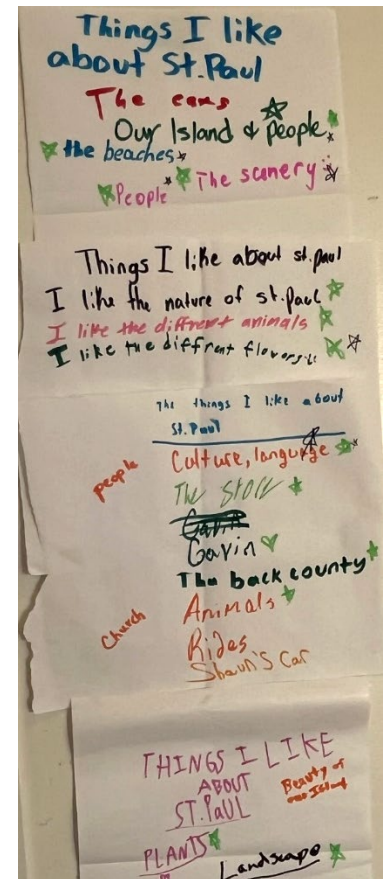 Things I like
about St.Paul
The cans
Our Island & people
the beaches
The scenery
People
Things I like about st.paul
I like the nature of st.paul
I like the diffrent animals
I like the diffrent flovers
The things I like about
St.Paul
people
Culture, language
The Store
Gavin
Gavin
The back county
Church
Animals
Rides
Shaun's Car
THINGS I LIKE
ABOUT
ST.PaUL
Beauty of
our Island
PLANTS
Landscape